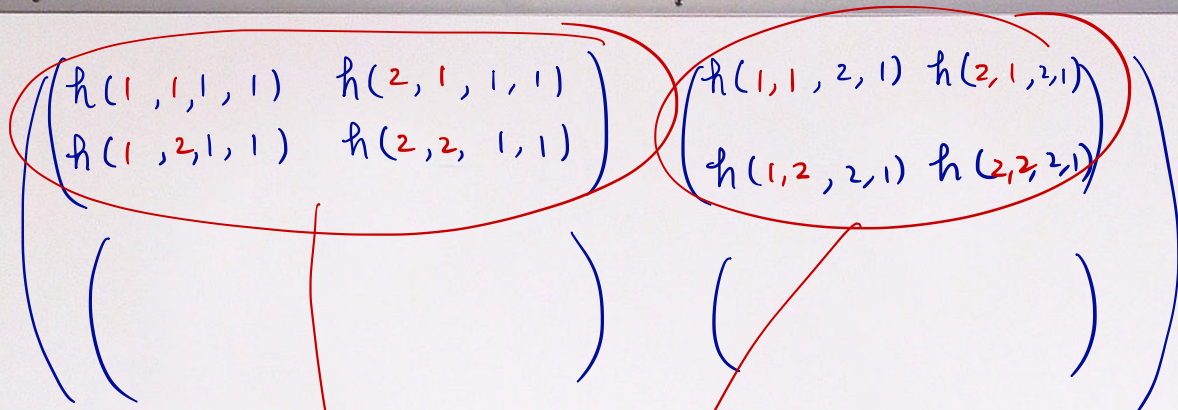 h(1,1,1,1) h(2,1,1,1) h(1,1,2,1) h(2,1,2,1)
h(1,2,1,1) h(2,2,1,1) h(1,2,2,1) h(2,2,2,1)